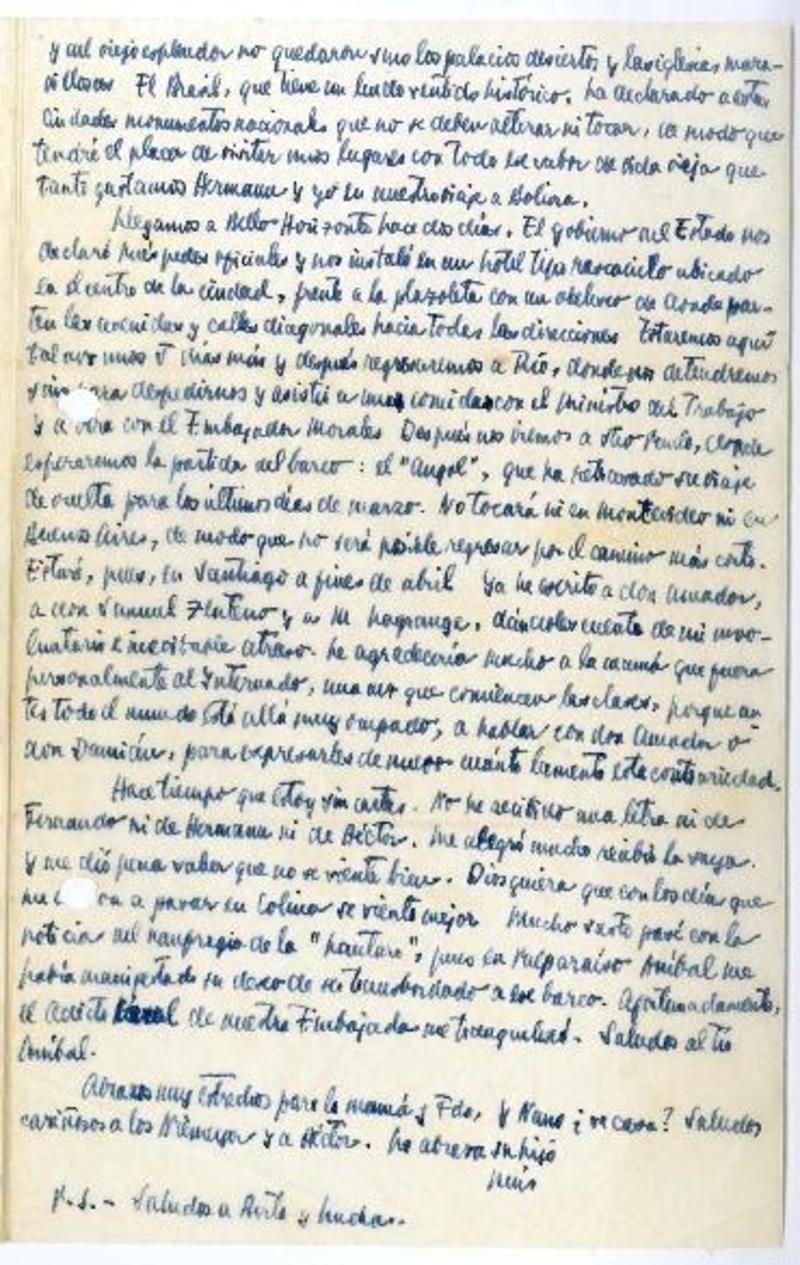 y del viejo esplendor no quedaron sino los palacios desiertos y las iglesias mara-
villosas. El Brasil, que tiene un hondo sentido histórico, ha declarado a estas
ciudades monumentos nacionales que no se deben alterar ni tocar, de modo que
tendré el placer de visitar unos lugares con todo ese sabor de vida vieja que
tanto gustamos Hermann y yo en nuestro viaje a Bolivia.
Llegamos a Bello Horizonte hace dos días. El gobierno del Estado nos
declaró huéspedes oficiales y nos instaló en un hotel tipo rascacielo ubicado
en el centro de la ciudad, frente a la plazoleta con un obelisco de donde par-
ten las avenidas y calles diagonales hacia todas las direcciones. Estaremos aquí
tal vez unos 5 días más y después regresaremos a Río, donde nos detendremos
sino para despedirnos y asistir a unas comidas con el Ministro del Trabajo
y a otra con el Embajador Morales. Después nos iremos a São Paulo, donde
esperaremos la partida del barco: el "Angol", que ha retrasado su viaje
de vuelta para los últimos días de marzo. No tocará ni en Montevideo ni en
Buenos Aires, de modo que no será posible regresar por el camino más corto.
Estaré, pues, en Santiago a fines de abril. Ya he escrito a don Amador,
a don Samuel Zenteno y a M. Lagrange, dándoles cuenta de mi invo-
luntario e inevitable atraso. Le agradecería mucho a la mamá que fuera
personalmente al Internado, una vez que comiencen las clases, porque an-
tes todo el mundo está allá muy ocupado, a hablar con don Amador o
don Damián, para expresarles de nuevo cuánto lamento esta contrariedad.
Hace tiempo que estoy sin cartas. No he recibido una letra ni de
Fernando ni de Hermann ni de Héctor. Me alegró mucho recibir la suya.
y me dió pena saber que no se siente bien. Dios quiera que con los días que
on a pasar en Colina se sienta mejor. Mucho susto pasé con la
noticia del naufragio de la "Lautaro", pues en Valparaíso Aníbal me
había manifestado su deseo de ser transbordado a ese barco. Afortunadamente,
el Adicto Naval de nuestra Embajada me tranquilizó. Saludos al tío
Aníbal.
Abrazos muy estrechos para la mamá y Fdo. Y Nano ¿se casa? Saludos
cariñosos a los Niemeyer y a Héctor. Le abraza su hijo
Luis
P.S.- Saludos a Anita y Lucha.